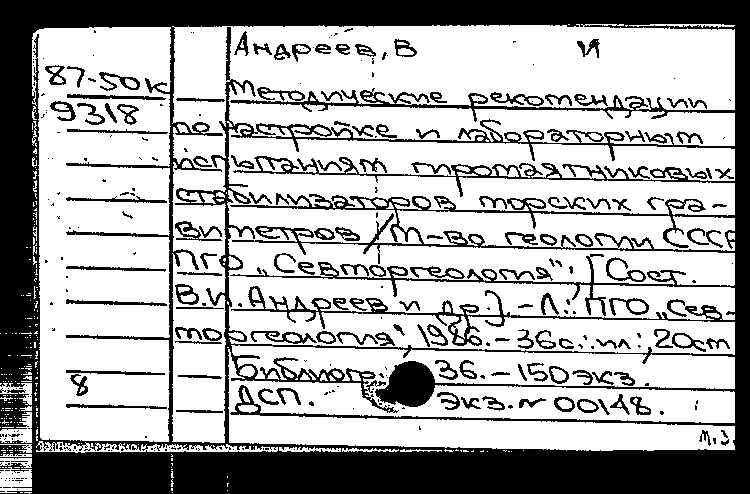 Андреев, В И
87-50к
Методические рекомендации
9318
по настройке и лабораторным
испытаниям гиромаятниковых
стабилизаторов морских гра-
виметров / М-во геологии СССР
ПГО „Севморгеология"; [Сост.
В.И. Андреев и др.]. - Л.: ПГО „Сев-
моргеология", 1986. - 36с.: ил.; 20см
Библиогр. 36. - 150 экз.
8
ДСП. экз. № 00148.
М.З.